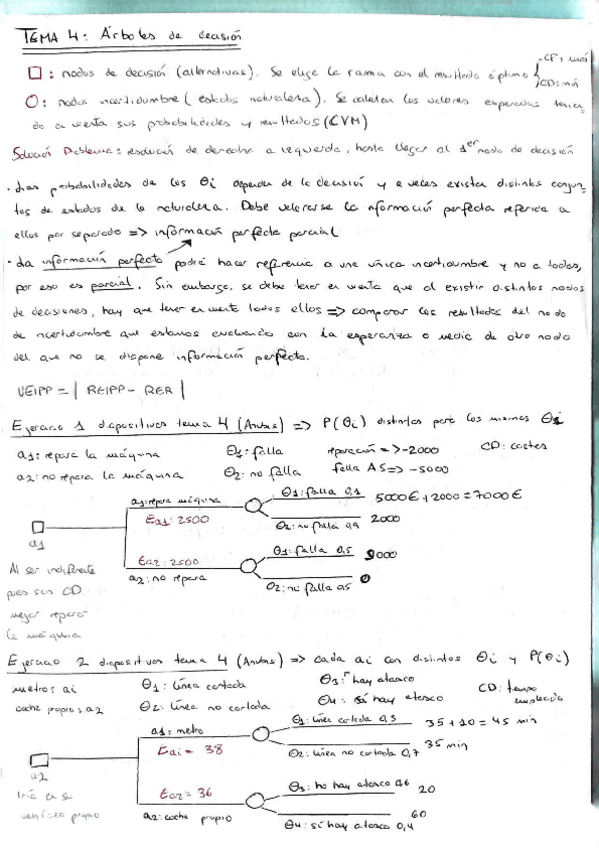 TEMA 4: Árboles de decisión
□: nodos de decisión (alternativas). Se elige la rama con el resultado óptimo CF: máx
CD: mín
O: nodos incertidumbre (estados naturaleza). Se calculan los valores esperados tenien
do en cuenta sus probabilidades y resultados (CVM)
Solución Problema: resolución de derecha a izquierda, hasta llegar al 1er nodo de decisión
· Las probabilidades de los θi dependen de la decisión y a veces existen distintos conjun
tos de estados de la naturaleza. Debe valorarse la información perfecta referida a
ellos por separado => información perfecta parcial
· La información perfecta podrá hacer referencia a una única incertidumbre y no a todas,
por eso es parcial. Sin embargo, se debe tener en cuenta que al existir distintos nodos
de decisiones, hay que tener en cuenta todos ellos => comparar los resultados del nodo
de incertidumbre que estamos evaluando con la esperanza o media de otro nodo
del que no se dispone información perfecta.
VEIPP = | REIPP - RER |
Ejercicio 1 diapositivas tema 4 (Anubas) => P(θi) distintos para los mismos θi
a1: repara la máquina θ1: falla reparación => -2000 CD: costes
a2: no repara la máquina θ2: no falla falla AS => -5000
a1: repara máquina θ1: falla 0,1 5000€ + 2000 = 7000€
Ea1: 2500 θ2: no falla 0,9 2000
a1
Ea2: 2500 θ1: falla 0,5 5000
a2: no repara θ2: no falla 0,5 0
Al ser indiferente
pues son CD
mejor reparar
la máquina
Ejercicio 2 diapositivas tema 4 (Anubas) => cada ai con distintos θi y P(θi)
metro: a1 θ1: línea cortada θ3: no hay atasco CD: tiempo
empleado
coche propio: a2 θ2: línea no cortada θ4: sí hay atasco
a1: metro θ1: línea cortada 0,3 35 + 10 = 45 min
Ea1 = 38 θ2: línea no cortada 0,7 35 min
a2
Ea2 = 36 θ3: no hay atasco 0,6 20
a2: coche propio θ4: sí hay atasco 0,4 60
Iría en su
vehículo propio